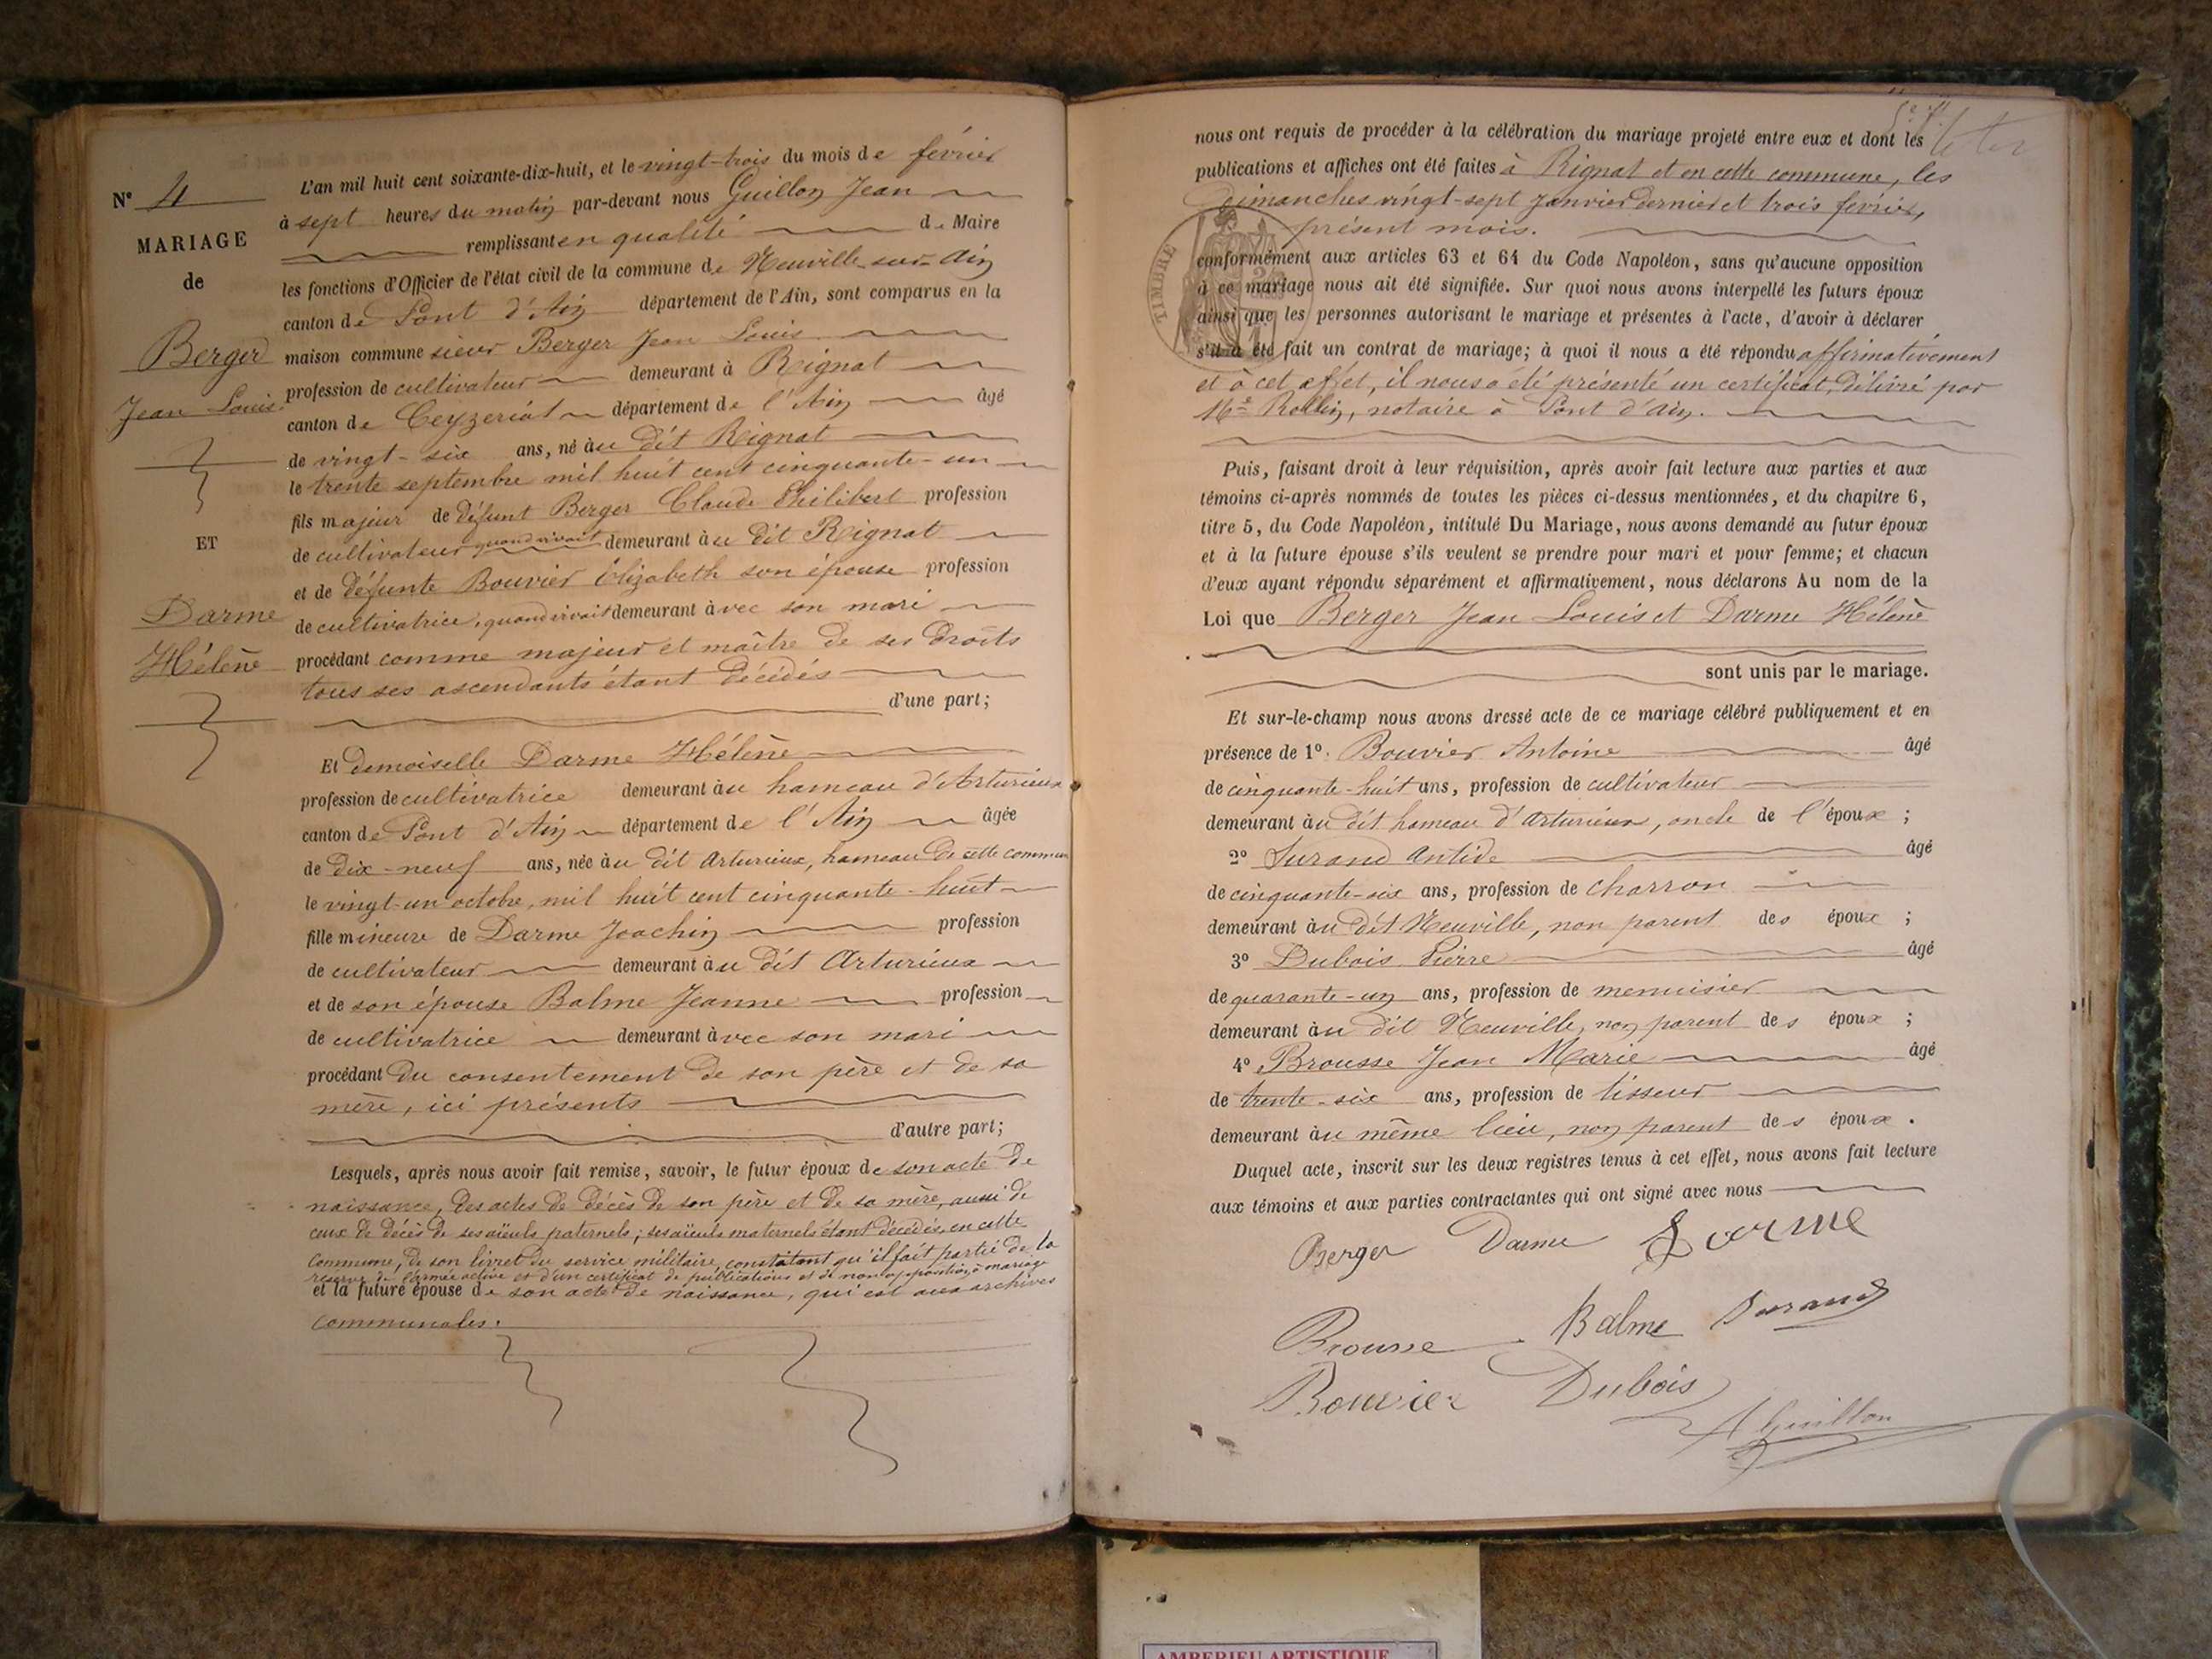 Nº 4
MARIAGE
de
Berger
Jean Louis
ET
Darme
Hélène
L'an mil huit cent soixante-dix-huit, et le vingt-trois du mois de février
à sept heures du matin par-devant nous Guillon Jean
remplissant en qualité de Maire
les fonctions d'Officier de l'état civil de la commune de Neuville-sur-Ain
canton de Pont d'Ain département de l'Ain, sont comparus en la
maison commune sieur Berger Jean Louis
profession de cultivateur demeurant à Rignat
canton de Ceyzériat département de l'Ain âgé
de vingt-six ans, né au dit Rignat
le trente septembre mil huit cent cinquante-un
fils majeur de défunt Berger Claude Philibert profession
de cultivateur quand vivait demeurant au dit Rignat
et de défunte Bouvier Elizabeth son épouse profession
de cultivatrice, quand vivait demeurant avec son mari
procédant comme majeur et maître de ses droits
tous ses ascendants étant décédés
d'une part;
Et demoiselle Darme Hélène
profession de cultivatrice demeurant au hameau d'Arturieux
canton de Pont d'Ain département de l'Ain âgée
de dix-neuf ans, née au dit Arturieux, hameau de cette commun
le vingt-un octobre, mil huit cent cinquante-huit
fille mineure de Darme Joachin profession
de cultivateur demeurant au dit Arturieux
et de son épouse Balme Jeanne profession
de cultivatrice demeurant avec son mari
procédant du consentement de son père et de sa
mère, ici présents
d'autre part;
Lesquels, après nous avoir fait remise, savoir, le futur époux de son acte de
naissance, des actes de décès de son père et de sa mère, aussi de
ceux de décès de ses aïeuls paternels; ses aïeuls maternels étant décédés, en cette
commune, de son livret du service militaire, constatant qu'il fait partie de la
reserve de l'armée active et d'un certificat de publications et de non opposition à mariage
et la future épouse de son acte de naissance, qui est aux archives
communales.
nous ont requis de procéder à la célébration du mariage projeté entre eux et dont les
publications et affiches ont été faites à Rignat et en cette commune, les
Dimanches vingt-sept Janvier dernier et trois février,
présent mois.
TIMBRE
conformément aux articles 63 et 64 du Code Napoléon, sans qu'aucune opposition
à ce mariage nous ait été signifiée. Sur quoi nous avons interpellé les futurs époux
ainsi que les personnes autorisant le mariage et présentes à l'acte, d'avoir à déclarer
s'il a été fait un contrat de mariage; à quoi il nous a été répondu affirmativement
et à cet effet, il nous a été présenté un certificat, délivré par
Me Rollin, notaire à Pont d'Ain.
Puis, faisant droit à leur réquisition, après avoir fait lecture aux parties et aux
témoins ci-après nommés de toutes les pièces ci-dessus mentionnées, et du chapitre 6,
titre 5, du Code Napoléon, intitulé Du Mariage, nous avons demandé au futur époux
et à la future épouse s'ils veulent se prendre pour mari et pour femme; et chacun
d'eux ayant répondu séparément et affirmativement, nous déclarons Au nom de la
Loi que Berger Jean Louis et Darme Hélène
sont unis par le mariage.
Et sur-le-champ nous avons dressé acte de ce mariage célébré publiquement et en
présence de 1º Bouvier Antoine âgé
de cinquante-huit ans, profession de cultivateur
demeurant au dit hameau d'Arturieux, oncle de l'époux ;
2º Durand Antide âgé
de cinquante-six ans, profession de charron
demeurant au dit Neuville, non parent des époux ;
3º Dubois Pierre âgé
de quarante-un ans, profession de menuisier
demeurant au dit Neuville, non parent des époux ;
4º Brousse Jean Marie âgé
de trente-six ans, profession de tisseur
demeurant au même lieu, non parent des époux .
Duquel acte, inscrit sur les deux registres tenus à cet effet, nous avons fait lecture
aux témoins et aux parties contractantes qui ont signé avec nous
Berger Darme Darme
Brousse Balme Durand
Bouvier Dubois
Guillon
AMBERIEU ARTISTIQUE